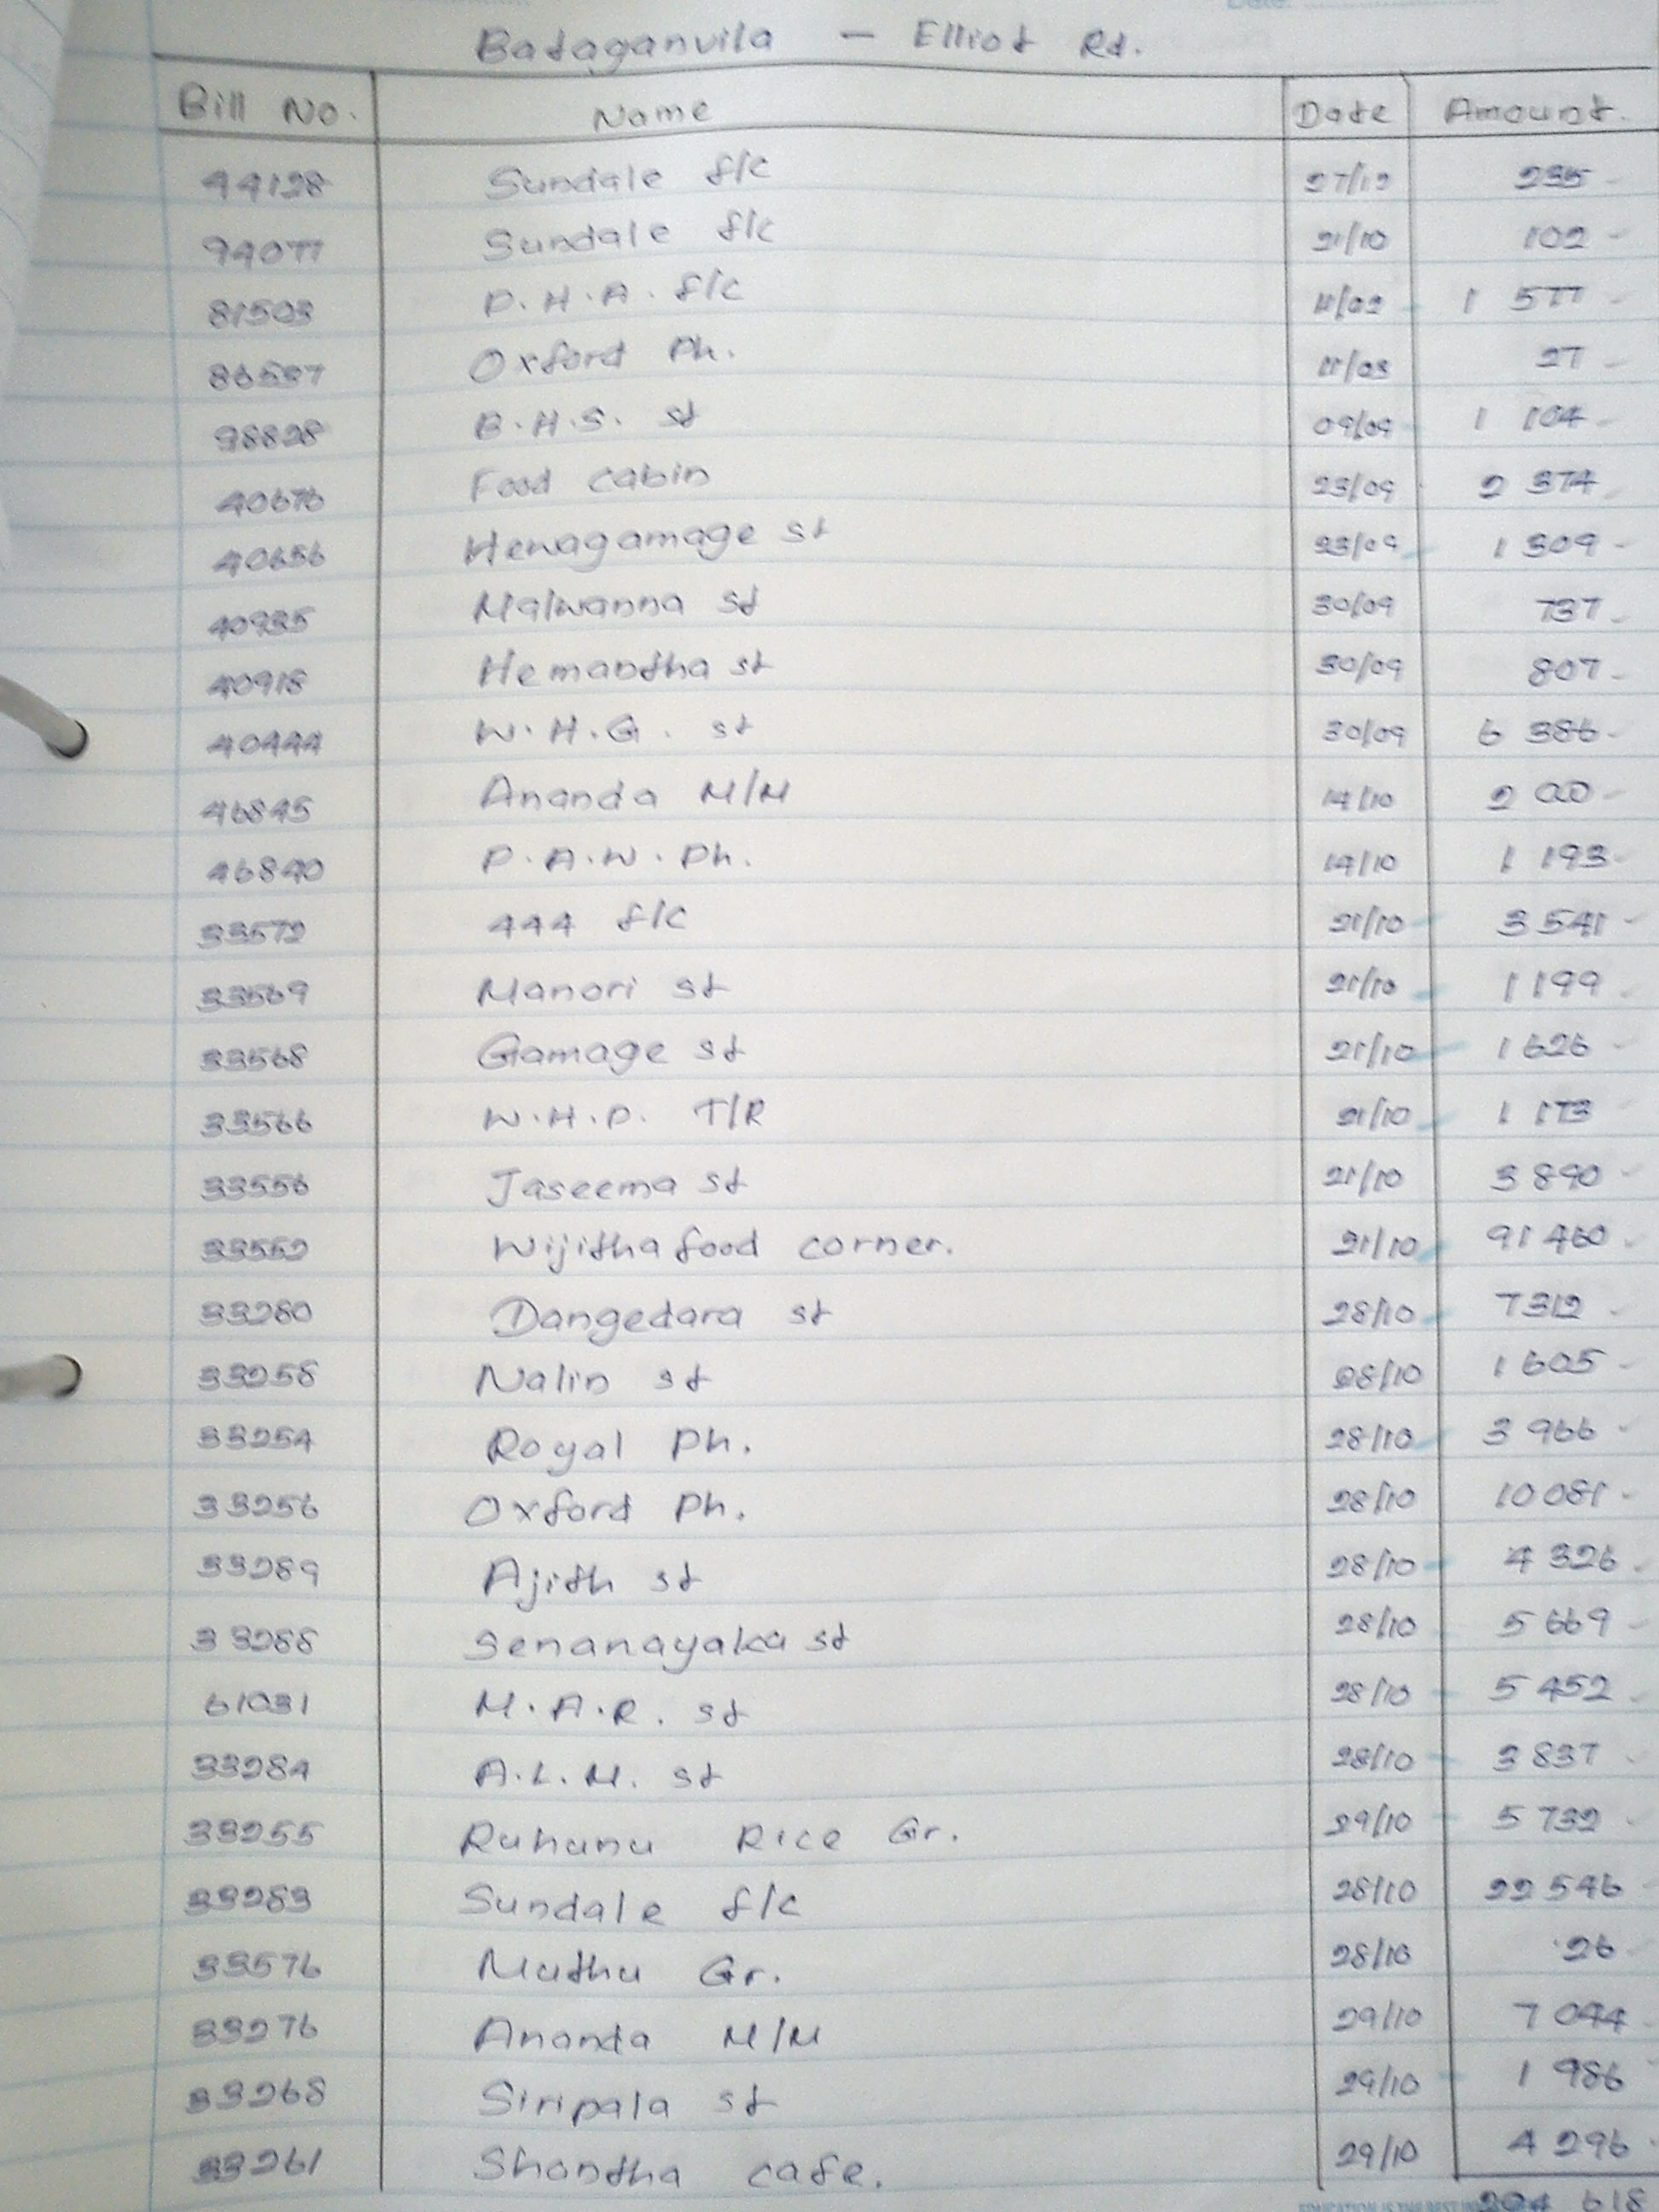 Bataganvila - Elliot Rd.
Bill No. Name Date Amount.
44128 Sundale f/c 27/12 235 -
94077 Sundale f/c 21/10 102 -
81503 P.H.A. f/c 11/02 1 577 -
86587 Oxford Ph. 11/03 27 -
98828 B.H.S. st 09/09 1 104 -
40676 Food cabin 23/09 2 374 -
40656 Hewagamage st 23/09 1 309 -
40935 Malwanna st 30/09 737 -
40918 Hemantha st 30/09 807 -
40444 W.H.G. st 30/09 6 386 -
46845 Ananda M/M 14/10 2 00 -
46840 P.A.W. Ph. 14/10 1 193 -
33572 444 f/c 21/10 3 541 -
33569 Manori st 21/10 1 199 -
33568 Gamage st 21/10 1 626 -
33566 W.H.P. T/R 21/10 1 173
33556 Jaseema st 21/10 3 890 -
33552 Wijitha food corner. 21/10 91 460 -
33280 Dangedara st 28/10 7312 -
33258 Nalin st 28/10 1 605 -
33254 Royal Ph. 28/10 3 966 -
33256 Oxford Ph. 28/10 10 081 -
33289 Ajith st 28/10 4 326 -
33288 Senanayaka st 28/10 5 669 -
61031 M.A.R. st 28/10 5 452 -
33284 A.L.M. st 28/10 3 837 -
33255 Ruhunu Rice Gr. 29/10 5 732 -
33283 Sundale f/c 28/10 22 546 -
33576 Muthu Gr. 28/10 26 -
33276 Ananda M/M 29/10 7 044 -
33268 Siripala st 29/10 1 986
33261 Shantha cafe. 29/10 4 296 -
204 618